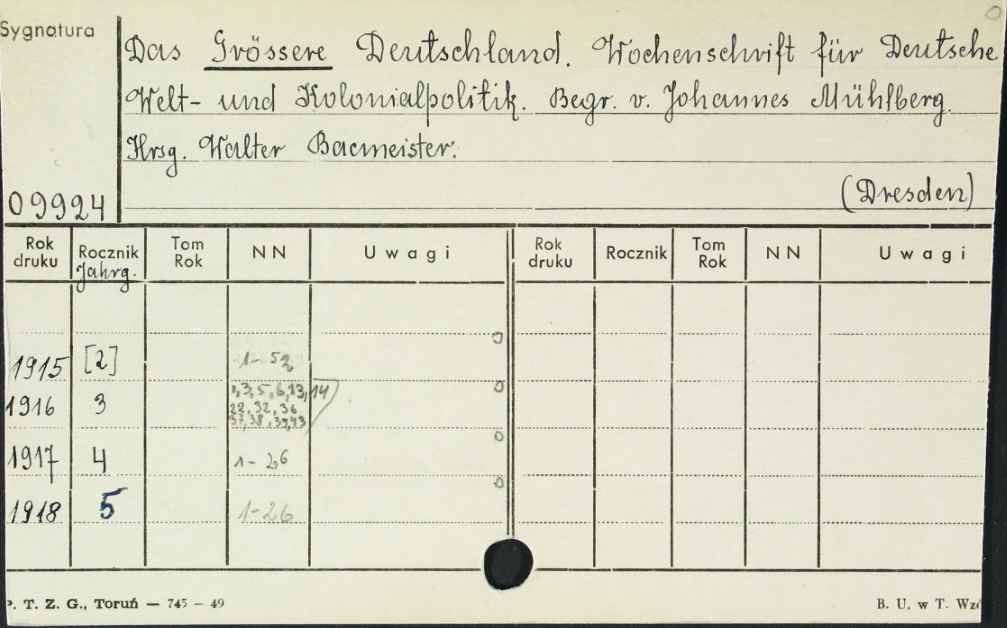 Sygnatura
Das Grössere Deutschland. Wochenschrift für Deutsche
Welt- und Kolonialpolitik. Begr. v. Johannes Mühlberg.
Hrsg. Walter Bacmeister.
(Dresden)
09924
Rok druku Rocznik Jahrg. Tom Rok NN Uwagi Rok druku Rocznik Tom Rok NN Uwagi
1915 [2] 1-52
1916 3 1,3,5,6,13,14
22,32,36
37,38,39,43
1917 4 1-26
1918 5 1-26
P. T. Z. G., Toruń — 745 — 49 B. U. w T. Wzó